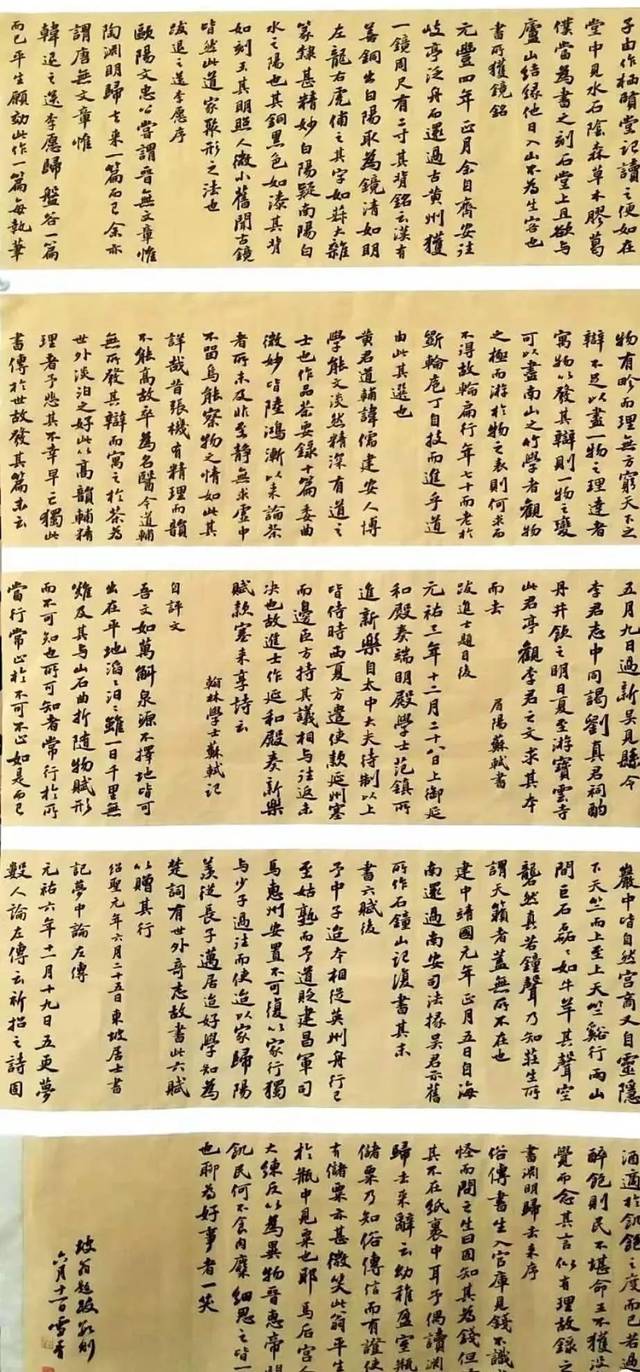 子由作栖賢堂記讀之便如在
堂中見水石陰森草木膠葛
僕當為書之刻石堂上且欲與
廬山結緣他日入山不為生客也
書所獲鏡銘
元豐四年正月余自齊安往
岐亭泛舟而還過古黃州獲
一鏡周尺有二寸其背銘云漢有
善銅出白陽取為鏡清如明
左龍右虎俌之其字如菽大雜
篆隸甚精妙白陽疑南陽白
水之陽也其銅黑色如漆其背
如刻玉其明照人微小舊聞古鏡
皆然此道家聚形之法也
跋退之送李愿序
歐陽文忠公嘗謂晉無文章惟
陶淵明歸去來一篇而已余亦
謂唐無文章惟
韓退之送李愿歸盤谷一篇
而已平生願効此作一篇每執筆
物有畛而理無方窮天下之
辯不足以盡一物之理達者
寓物以發其辯則一物之變
可以盡南山之竹學者觀物
之極而游於物之表則何求而
不得故輪扁行年七十而老於
斲輪庖丁自技而進乎道
由此其選也
黃君道輔諱儒建安人博
學能文淡然精深有道之
士也作品茶要錄十篇委曲
微妙皆陸鴻漸以來論茶
者所未及非至靜無求虛中
不留烏能察物之情如此其
詳哉昔張機有精理而韻
不能高故卒為名醫今道輔
無所發其辯而寓之於茶為
世外淡泊之好此以高韻輔精
理者予悲其不幸早亡獨此
書傳於世故發其篇末云
五月九日過新吳見縣令
李君志中同謁劉真君祠酌
丹井飲之明日夏至游寶雲寺
此君亭觀李君之文求其本
而去
眉陽蘇軾書
跋進士題目後
元祐三年十二月二十八日上御延
和殿奏端明殿學士范鎮所
進新樂自太中大夫待制以上
皆侍時西夏方遣使款延州塞
而邊臣方持其議相與往返未
決也故進士作延和殿奏新樂
賦款塞來享詩云
翰林學士蘇軾記
自評文
吾文如萬斛泉源不擇地皆可
出在平地滔滔汩汩雖一日千里無
難及其與山石曲折隨物賦形
而不可知也所可知者常行於所
當行常止於不可不止如是而已
巖中皆自然宮商又自靈隱
下天竺而上至上天竺谿行兩山
間巨石磊磊如牛羊其聲空
礱然真若鐘聲乃知莊生所
謂天籟者蓋無所不在也
建中靖國元年正月五日自海
南還過南安司法掾吳君示舊
所作石鐘山記復書其末
書六賦後
予中子迨本相從英州舟行已
至姑熟而予道貶建昌軍司
馬惠州安置不可復以家行獨
與少子過往而使迨以家歸陽
羨從長子邁居迨好學知為
楚詞有世外奇志故書此六賦
以贈其行
紹聖元年六月二十五日東坡居士書
記夢中論左傳
元祐六年十一月十九日五更夢
數人論左傳云祈招之詩固
酒適於飢飽之度而已若過
醉飽則民不堪命王不獲沒
覺而念其言似有理故錄之
書淵明歸去來序
俗傳書生入官庫見錢不識
怪而問之生曰固知其為錢但
其不在紙裹中耳予偶讀淵
歸去來辭云幼稚盈室瓶
儲粟乃知俗傳信而有證使
有儲粟亦甚微矣此翁平生
於瓶中見粟也耶馬后宮人
大練反以為異物晉惠帝
飢民何不食肉糜細思之皆一
也聊為好事者一笑
坡翁題跋數則